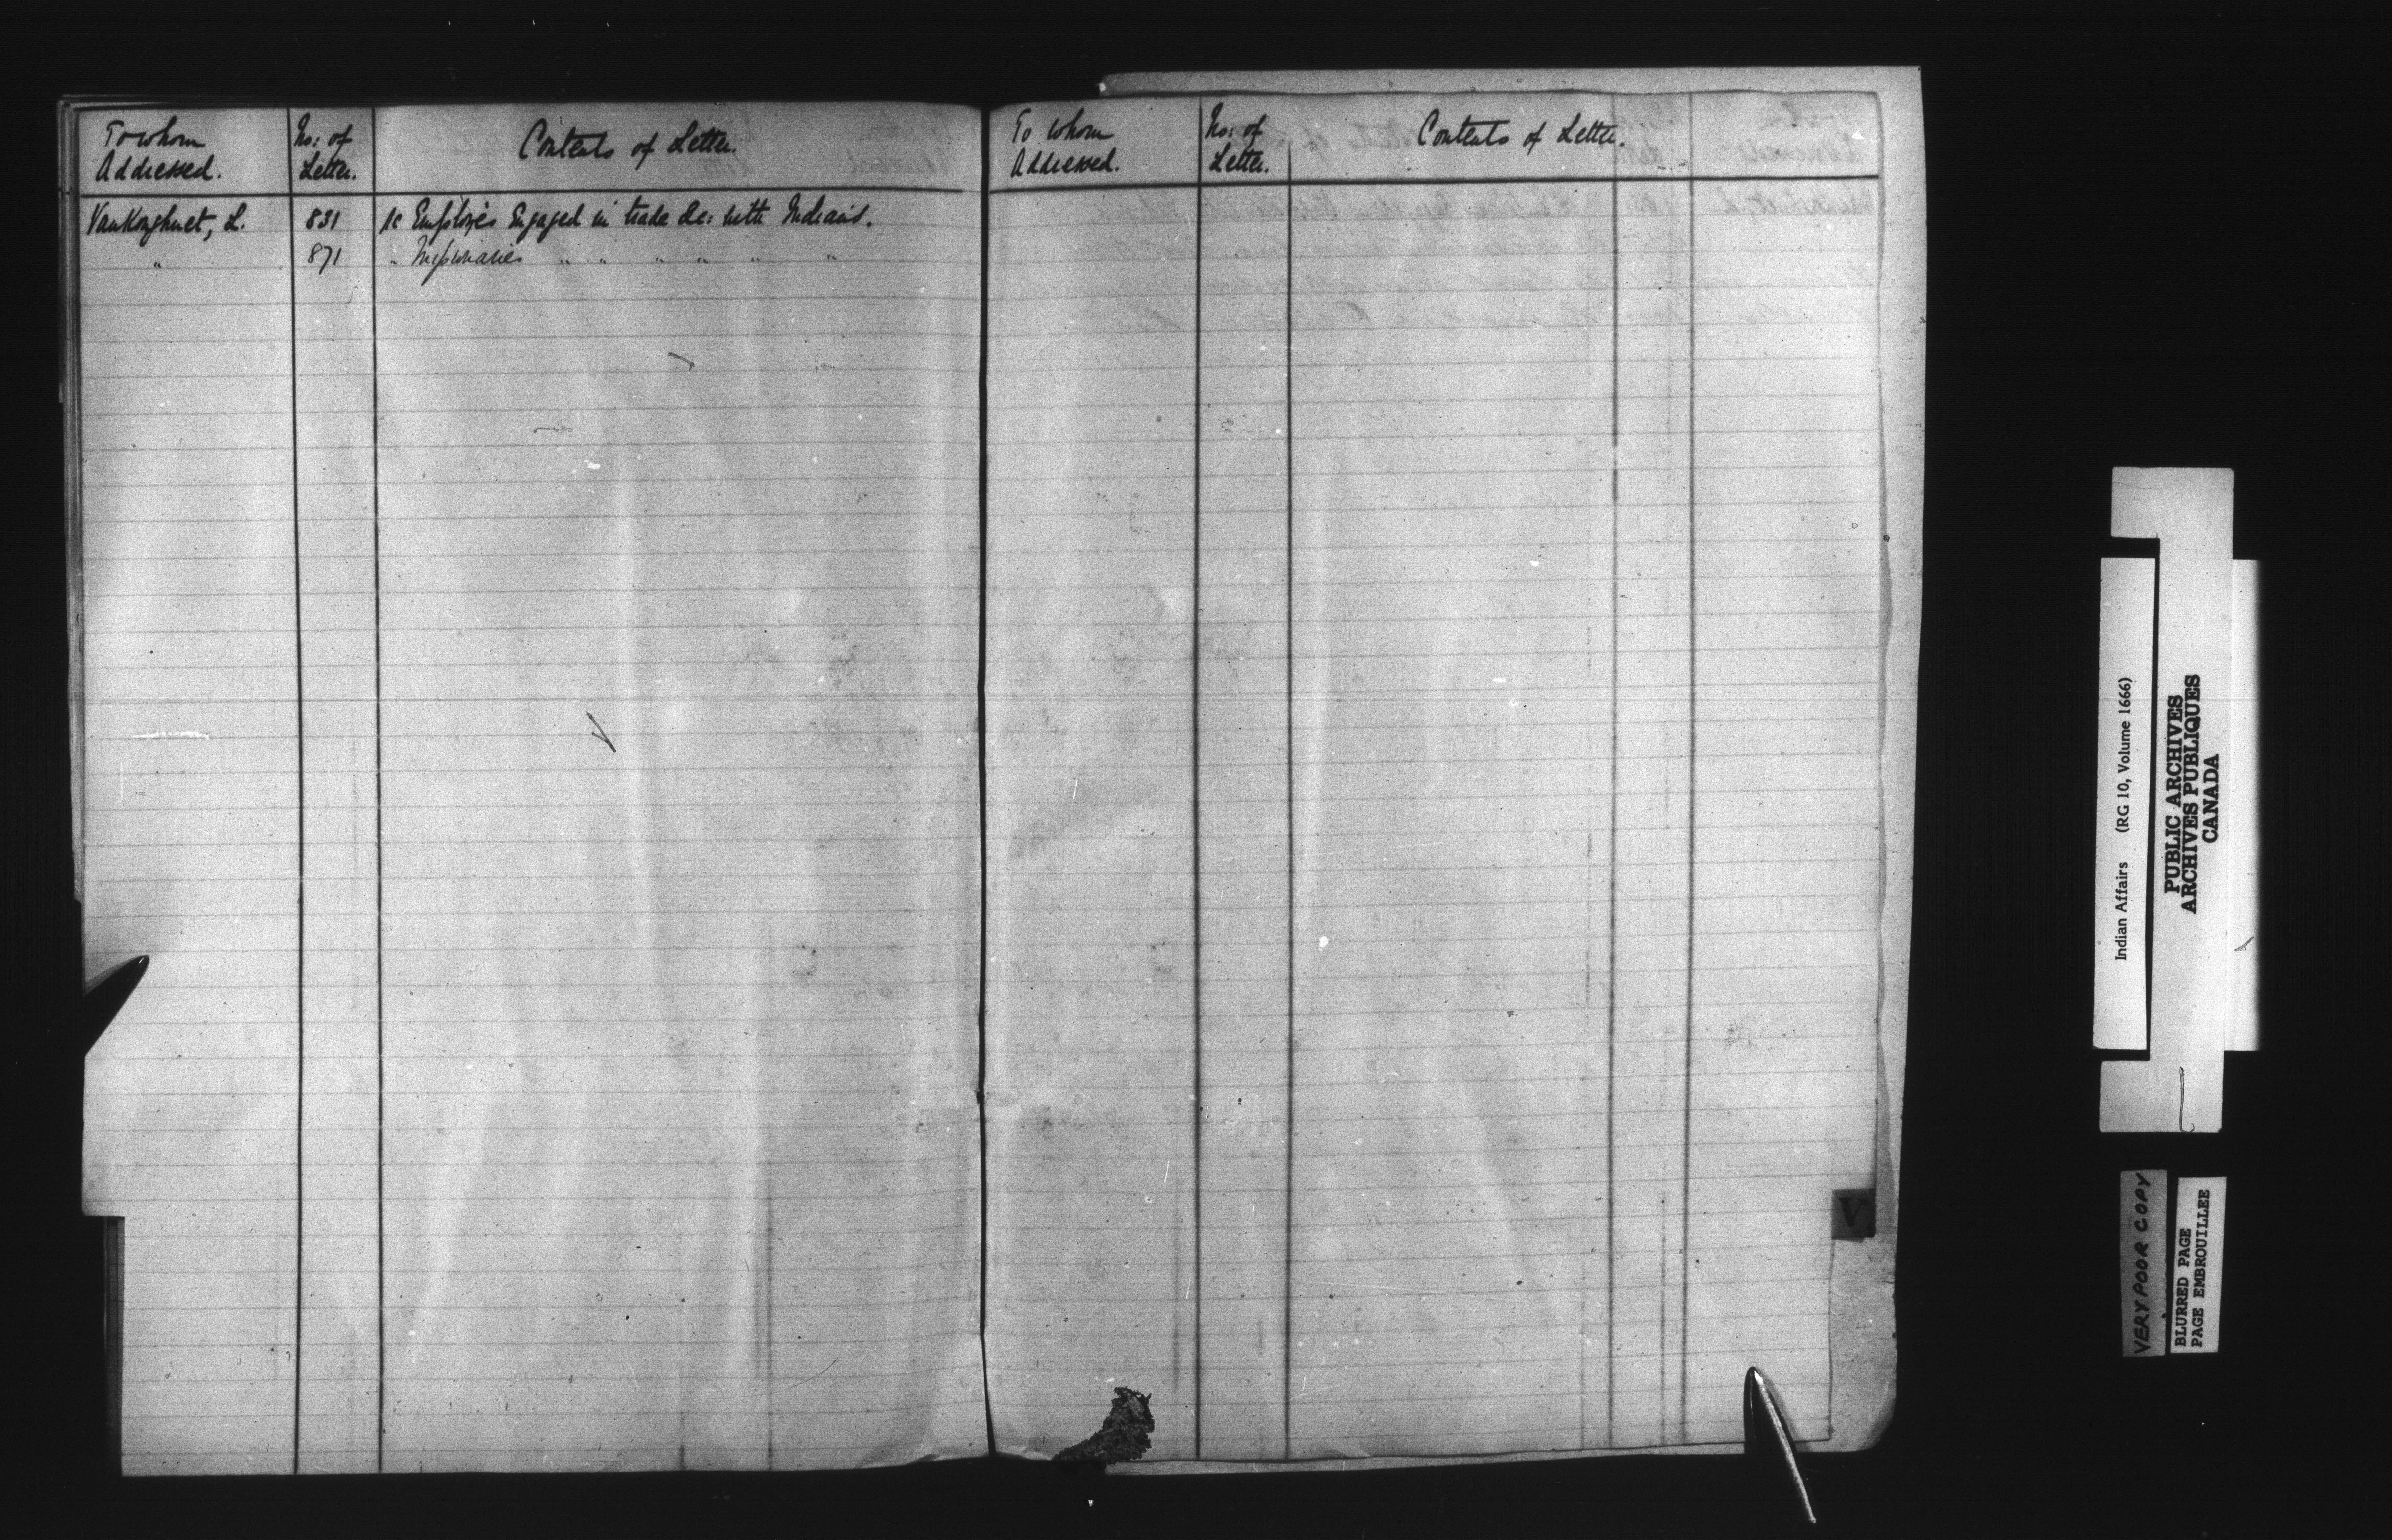 To whom
Addressed.
No: of
Letter.
Contents of Letter.
VanKoughnet, L. 831 re Employés Engaged in trade &c: with Indians.
" 871 " Missionaries " " " " " "
To whom
Addressed.
No: of
Letter.
Contents of Letter.
V
Indian Affairs (RG 10, Volume 1666)
PUBLIC ARCHIVES
ARCHIVES PUBLIQUES
CANADA
VERY POOR COPY
BLURRED PAGE
PAGE EMBROUILLEE